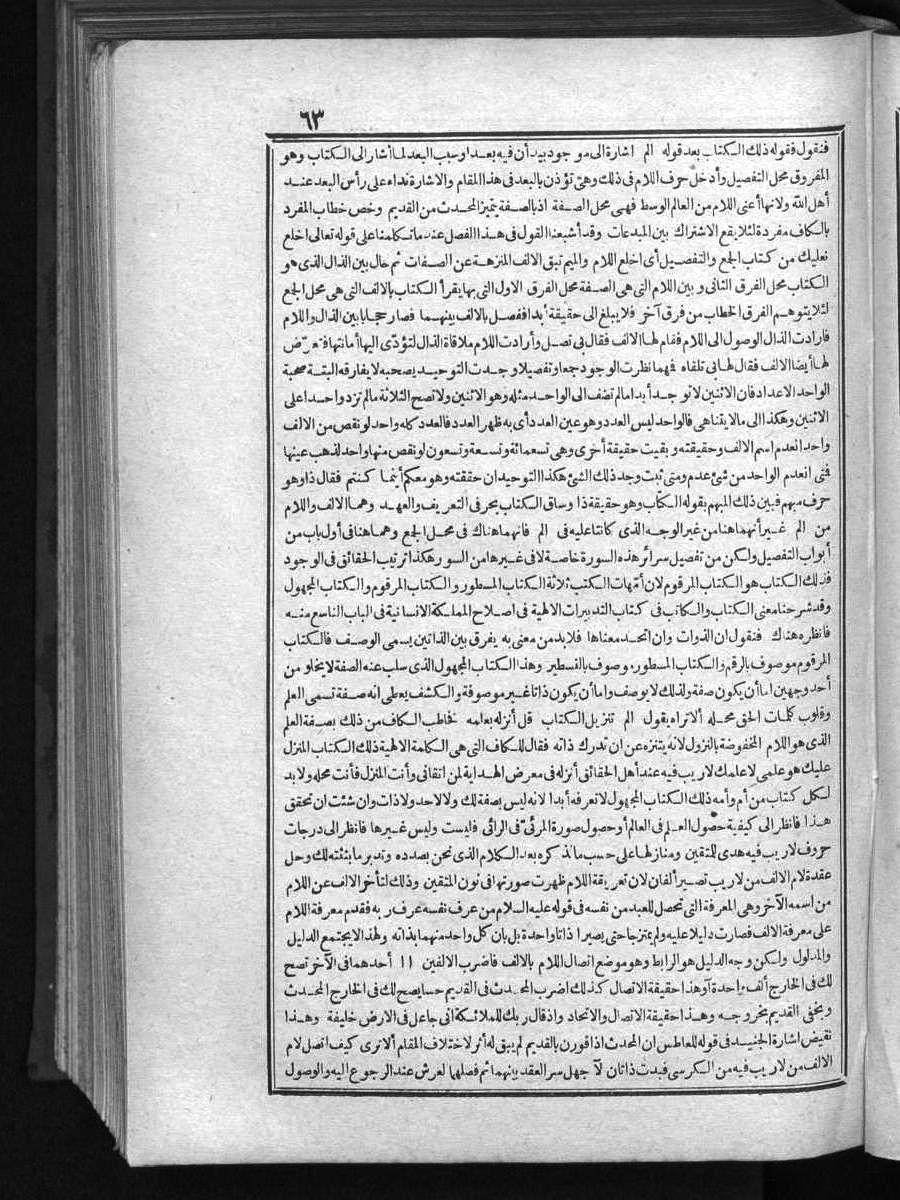 ٦٣
فنقول فقوله ذلك الكتاب بعد قوله الم اشارة الى موجود بيد أن فيه بعدا وسبب البعد لما أشار الى الكتاب وهو
المفروق محل التفصيل وأدخل حرف اللام فى ذلك وهى تؤذن بالبعد فى هذا المقام والاشارة نداء على رأس البعد عند
أهل الله ولانها أعنى اللام من العالم الوسط فهى محل الصفة اذ بالصفة يتميز المحدث من القديم وخص خطاب المفرد
بالكاف مفردة لئلا يقع الاشتراك بين المبدعات وقد أشبعنا القول فى هذا الفصل عند ما تكلمنا على قوله تعالى اخلع
نعليك من كتاب الجمع والتفصيل أى اخلع اللام والميم تبق الالف المنزهة عن الصفات ثم حال بين الذال الذى هو
الكتاب محل الفرق الثانى وبين اللام التى هى الصفة محل الفرق الاول التى بها يقرأ الكتاب بالالف التى هى محل الجمع
لئلا يتوهم الفرق الخطاب من فرق آخر فلا يبلغ الى حقيقة أبدا ففصل بالالف بينهما فصار حجابا بين الذال واللام
فارادت الذال الوصول الى اللام فقام لها الالف فقال بى تصل وأرادت اللام ملاقاة الذال لتؤدّى اليها أمانتها فتعرّض
لها أيضا الالف فقال لها بى تلقاه فهما نظرت الوجود جمعا وتفصيلا وجدت التوحيد يصحبه لا يفارقه البتة صحبة
الواحد الاعداد فان الاثنين لا توجد أبدا ما لم تضف الى الواحد مثله وهو الاثنين ولا تصح الثلاثة ما لم تزد واحدا على
الاثنين وهكذا الى ما لا يتناهى فالواحد ليس العدد وهو عين العدد أى به ظهر العدد فالعدد كله واحد لو نقص من الالف
واحد انعدم اسم الالف وحقيقته وبقيت حقيقة أخرى وهى تسعمائة وتسعة وتسعون لو نقص منها واحد لذهب عينها
فتى انعدم الواحد من شئ عدم ومتى ثبت وجد ذلك الشئ هكذا التوحيد ان حققته وهو معكم أينما كنتم فقال ذا وهو
حرف مبهم فبين ذلك المبهم بقوله الكتاب وهو حقيقة ذا وساق الكتاب بحرفى التعريف والعهد وهما الالف واللام
من الم غير أنهما هنا من غير الوجه الذى كانتا عليه فى الم فانهما هناك فى محل الجمع وهما هنا فى أول باب من
أبواب التفصيل ولكن من تفصيل سرائر هذه السورة خاصة لا فى غيرها من السور هكذا ترتيب الحقائق فى الوجود
فذلك الكتاب هو الكتاب المرقوم لان أمّهات الكتب ثلاثة الكتاب المسطور والكتاب المرقوم والكتاب المجهول
وقد شرحنا معنى الكتاب والكاتب فى كتاب التدبيرات الالهية فى اصلاح المملكة الانسانية فى الباب التاسع منه
فانظره هناك فنقول ان الذوات وان اتحد معناها فلا بد من معنى به يفرق بين الذاتين يسمى الوصف فالكتاب
المرقوم موصوف بالرقم والكتاب المسطور موصوف بالتسطير وهذا الكتاب المجهول الذى سلب عنه الصفة لا يخلو من
أحد وجهين اما أن يكون صفة ولذلك لا يوصف واما أن يكون ذاتا غير موصوفة والكشف يعطى انه صفة تسمى العلم
وقلوب كلمات الحق محله ألا تراه يقول الم تنزيل الكتاب قل أنزله بعلمه فخاطب الكاف من ذلك بصفة العلم
الذى هو اللام المخفوضة بالنزول لانه يتنزه عن ان تدرك ذاته فقال للكاف التى هى الكلمة الالهية ذلك الكتاب المنزل
عليك هو علمى لا علمك لا ريب فيه عند أهل الحقائق أنزله فى معرض الهداية لمن اتقانى وأنت المنزل فأنت محله ولا بد
لكل كتاب من أم وأمه ذلك الكتاب المجهول لا تعرفه أبدا لانه ليس بصفة لك ولا لاحد ولا ذات وان شئت ان تحقق
هذا فانظر الى كيفية حصول العلم فى العالم أو حصول صورة المرئىّ فى الرائى فليست وليس غيرها فانظر الى درجات
حروف لا ريب فيه هدى للمتقين ومنازلها على حسب ما نذكره بعد الكلام الذى نحن بصدده وتدبر ما بثثته لك وحل
عقدة لام الالف من لا ريب تصير ألفان لان تعريقة اللام ظهرت صورتها فى نون المتقين وذلك لتأخر الالف عن اللام
من اسمه الآخر وهى المعرفة التى تحصل للعبد من نفسه فى قوله عليه السلام من عرف نفسه عرف ربه فقدم معرفة اللام
على معرفة الالف فصارت دليلا عليه ولم يمتزجا حتى يصيرا ذاتا واحدة بل بان كل واحد منهما بذاته ولهذا لا يجتمع الدليل
والمدلول ولكن وجه الدليل هو الرابط وهو موضع اتصال اللام بالالف فاضرب الالفين ١١ أحدهما فى الآخر تصح
لك فى الخارج ألف واحدة آ وهذا حقيقة الاتصال كذلك اضرب المحدث فى القديم حسا يصح لك فى الخارج المحدث
ويخفى القديم بخروجه وهذا حقيقة الاتصال والاتحاد واذ قال ربك للملائكة انى جاعل فى الارض خليفة وهذا
نقيض اشارة الجنيد فى قوله للعاطس ان المحدث اذا قورن بالقديم لم يبق له أثر لاختلاف المقام ألا ترى كيف اتصل لام
الالف من لا ريب فيه من الكرسى فبدت ذاتان لآ جهل سر العقد بينهما ثم فصلهما لعرش عند الرجوع اليه والوصول